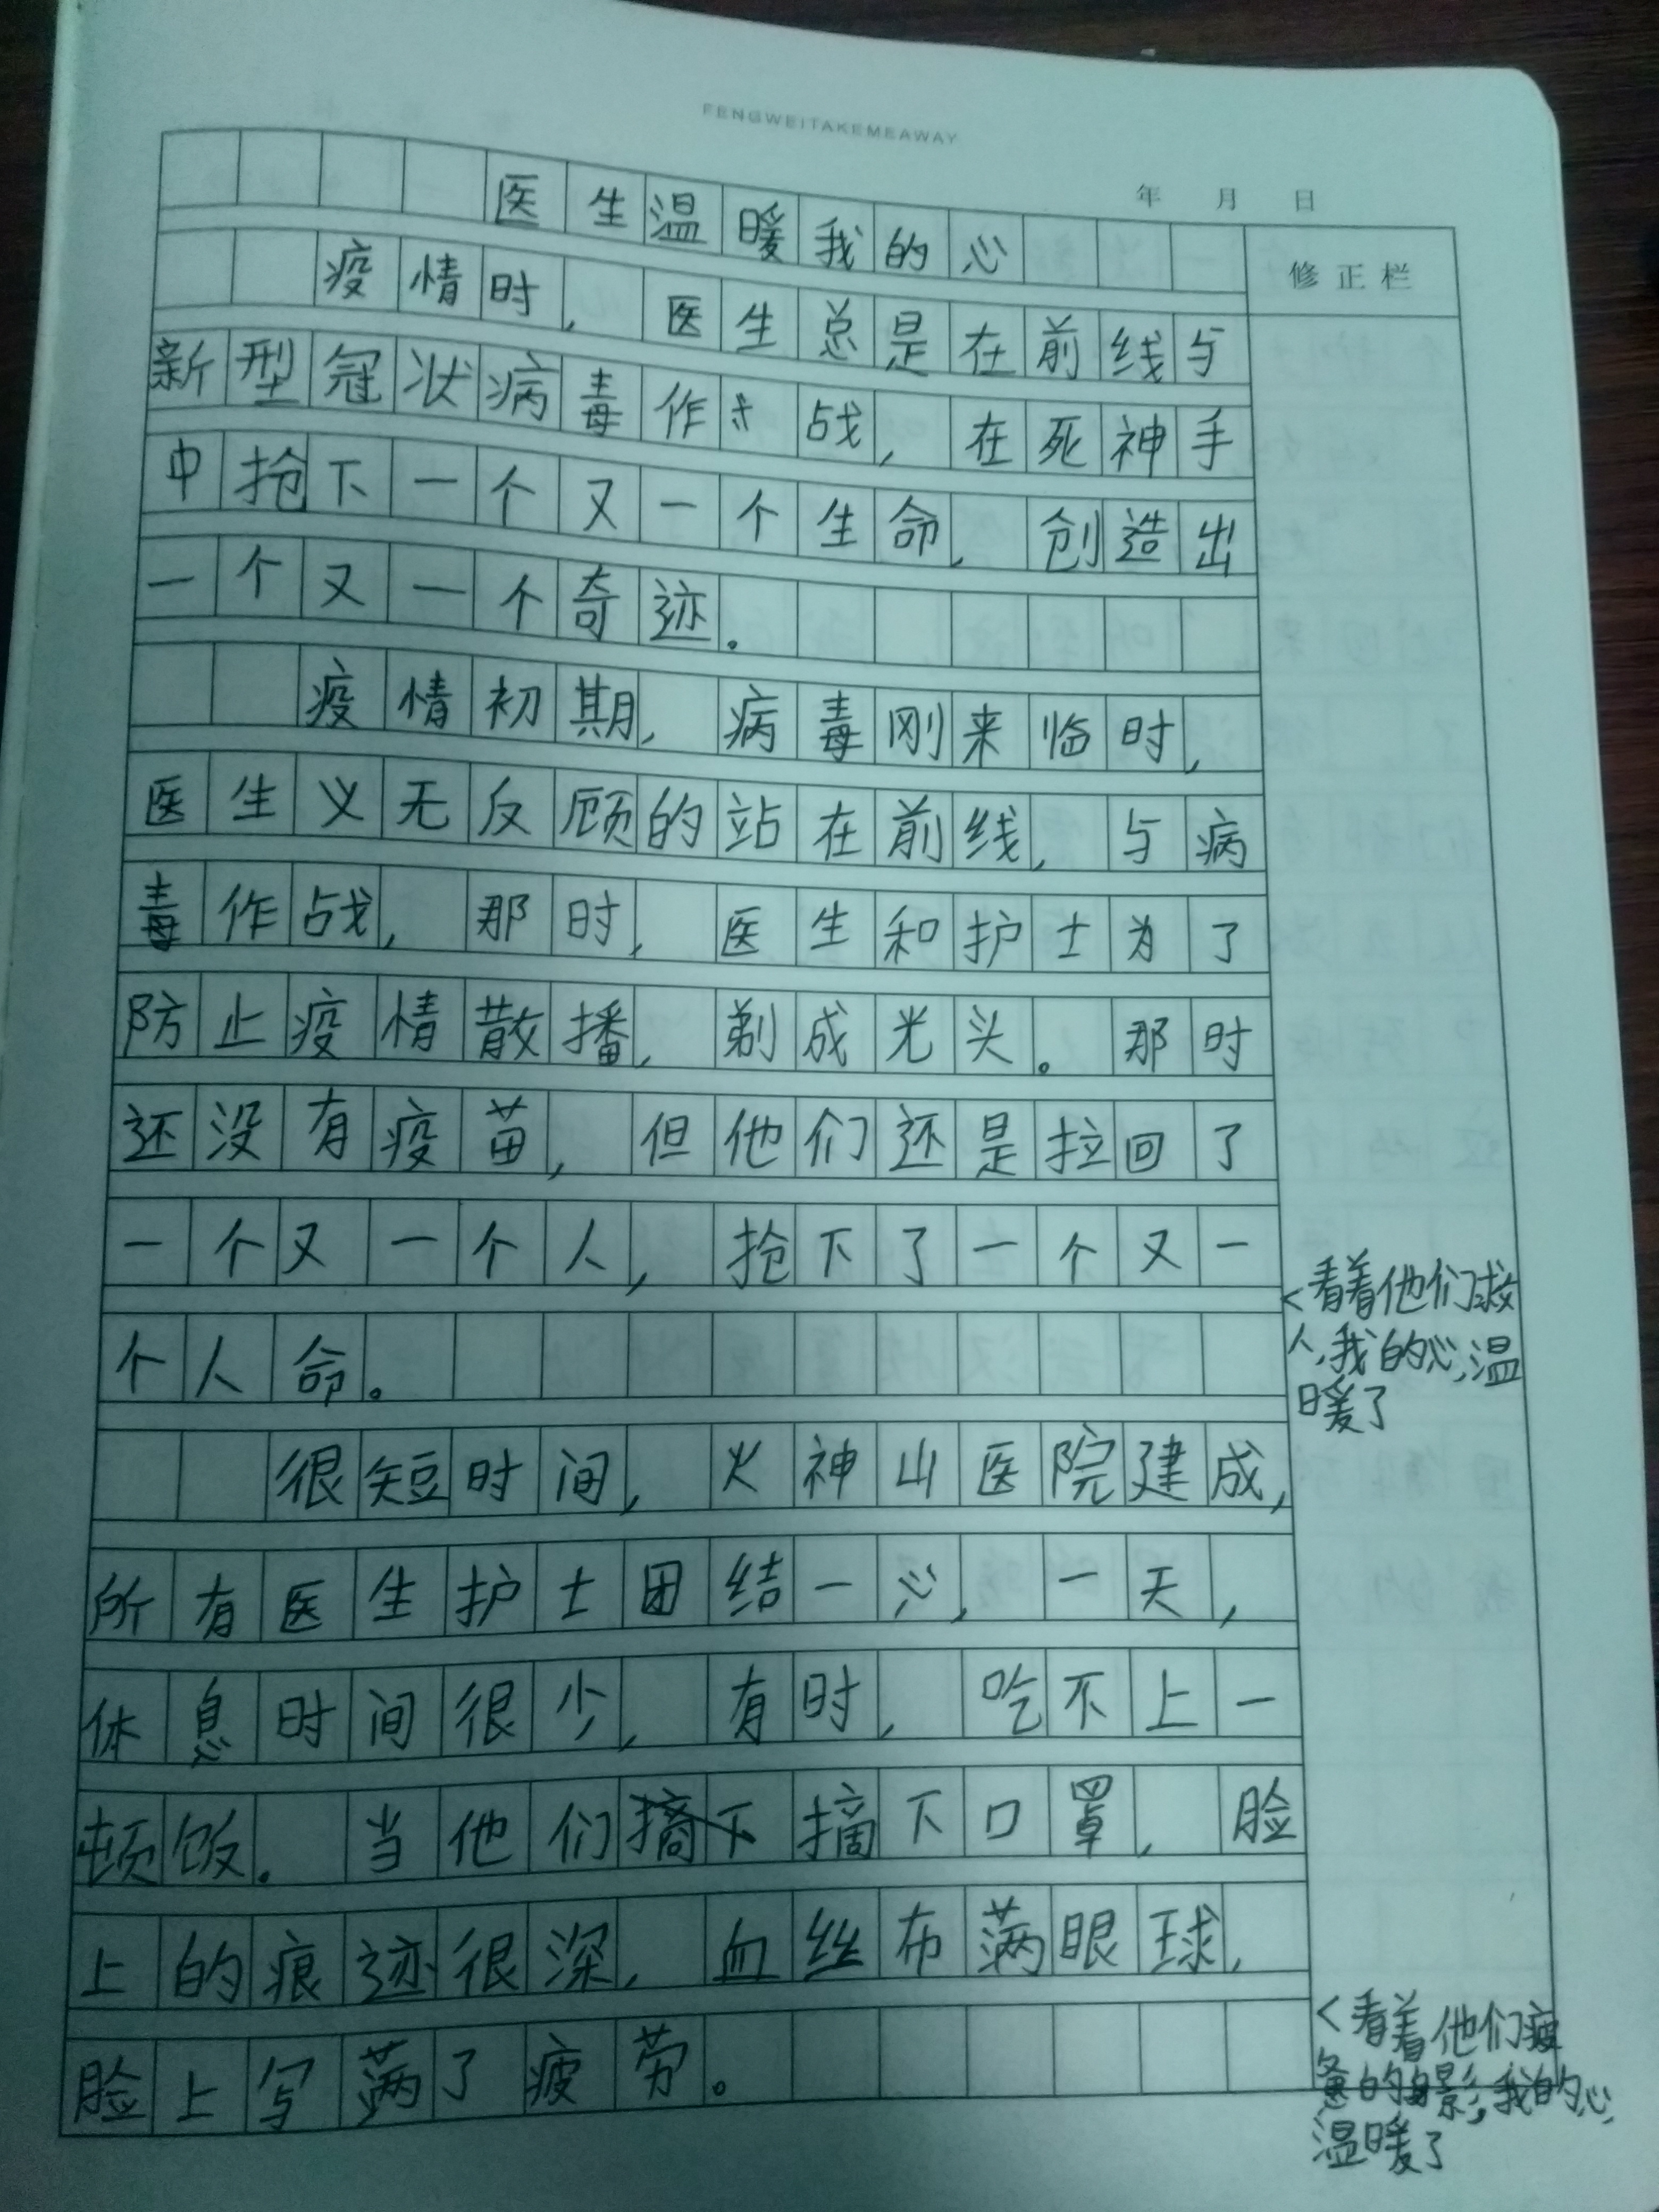 FENGWEITAKEMEAWAY
年 月 日
医生温暖我的心
修正栏
疫情时，医生总是在前线与
新型冠状病毒作战，在死神手
中抢下一个又一个生命，创造出
一个又一个奇迹。
疫情初期，病毒刚来临时，
医生义无反顾的站在前线，与病
毒作战，那时，医生和护士为了
防止疫情散播，剃成光头。那时
还没有疫苗，但他们还是拉回了
一个又一个人，抢下了一个又一
个人命。
<看着他们救
人，我的心，温
暖了
很短时间，火神山医院建成，
所有医生护士团结一心，一天，
休息时间很少，有时，吃不上一
顿饭。当他们摘下口罩，脸
上的痕迹很深，血丝布满眼球，
脸上写满了疲劳。
<看着他们疲
惫的身影，我的心，
温暖了